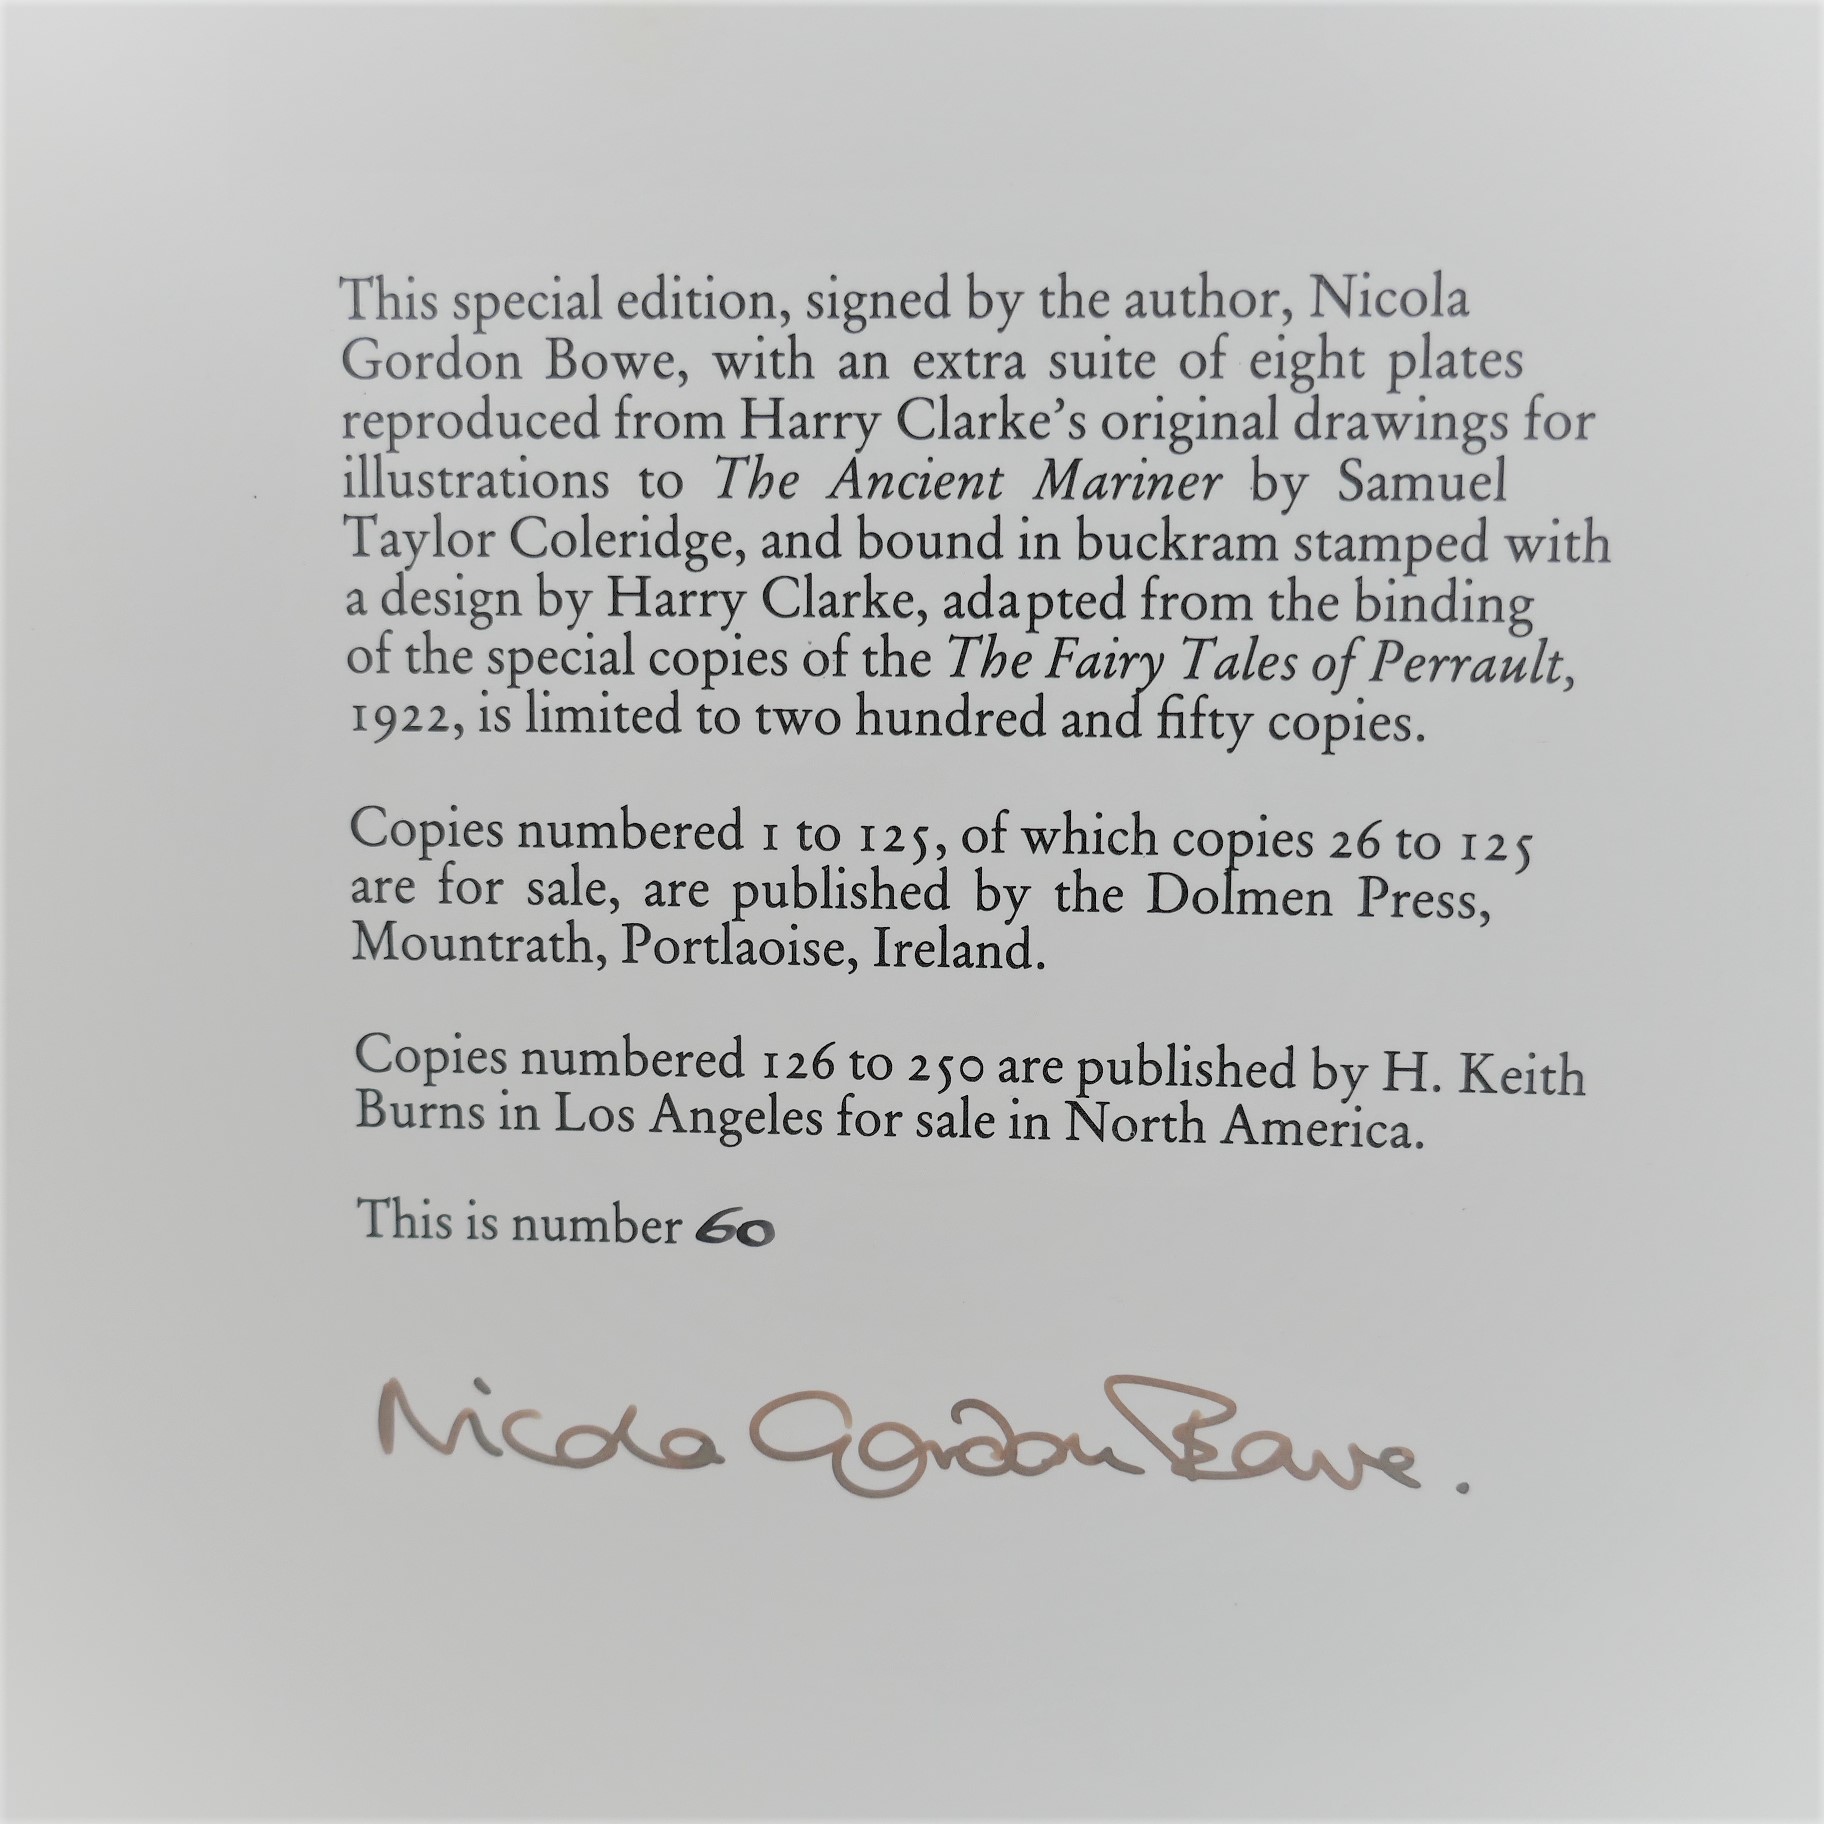 This special edition, signed by the author, Nicola
Gordon Bowe, with an extra suite of eight plates
reproduced from Harry Clarke's original drawings for
illustrations to The Ancient Mariner by Samuel
Taylor Coleridge, and bound in buckram stamped with
a design by Harry Clarke, adapted from the binding
of the special copies of the The Fairy Tales of Perrault,
1922, is limited to two hundred and fifty copies.
Copies numbered 1 to 125, of which copies 26 to 125
are for sale, are published by the Dolmen Press,
Mountrath, Portlaoise, Ireland.
Copies numbered 126 to 250 are published by H. Keith
Burns in Los Angeles for sale in North America.
This is number 60
Nicola Gordon Bowe.